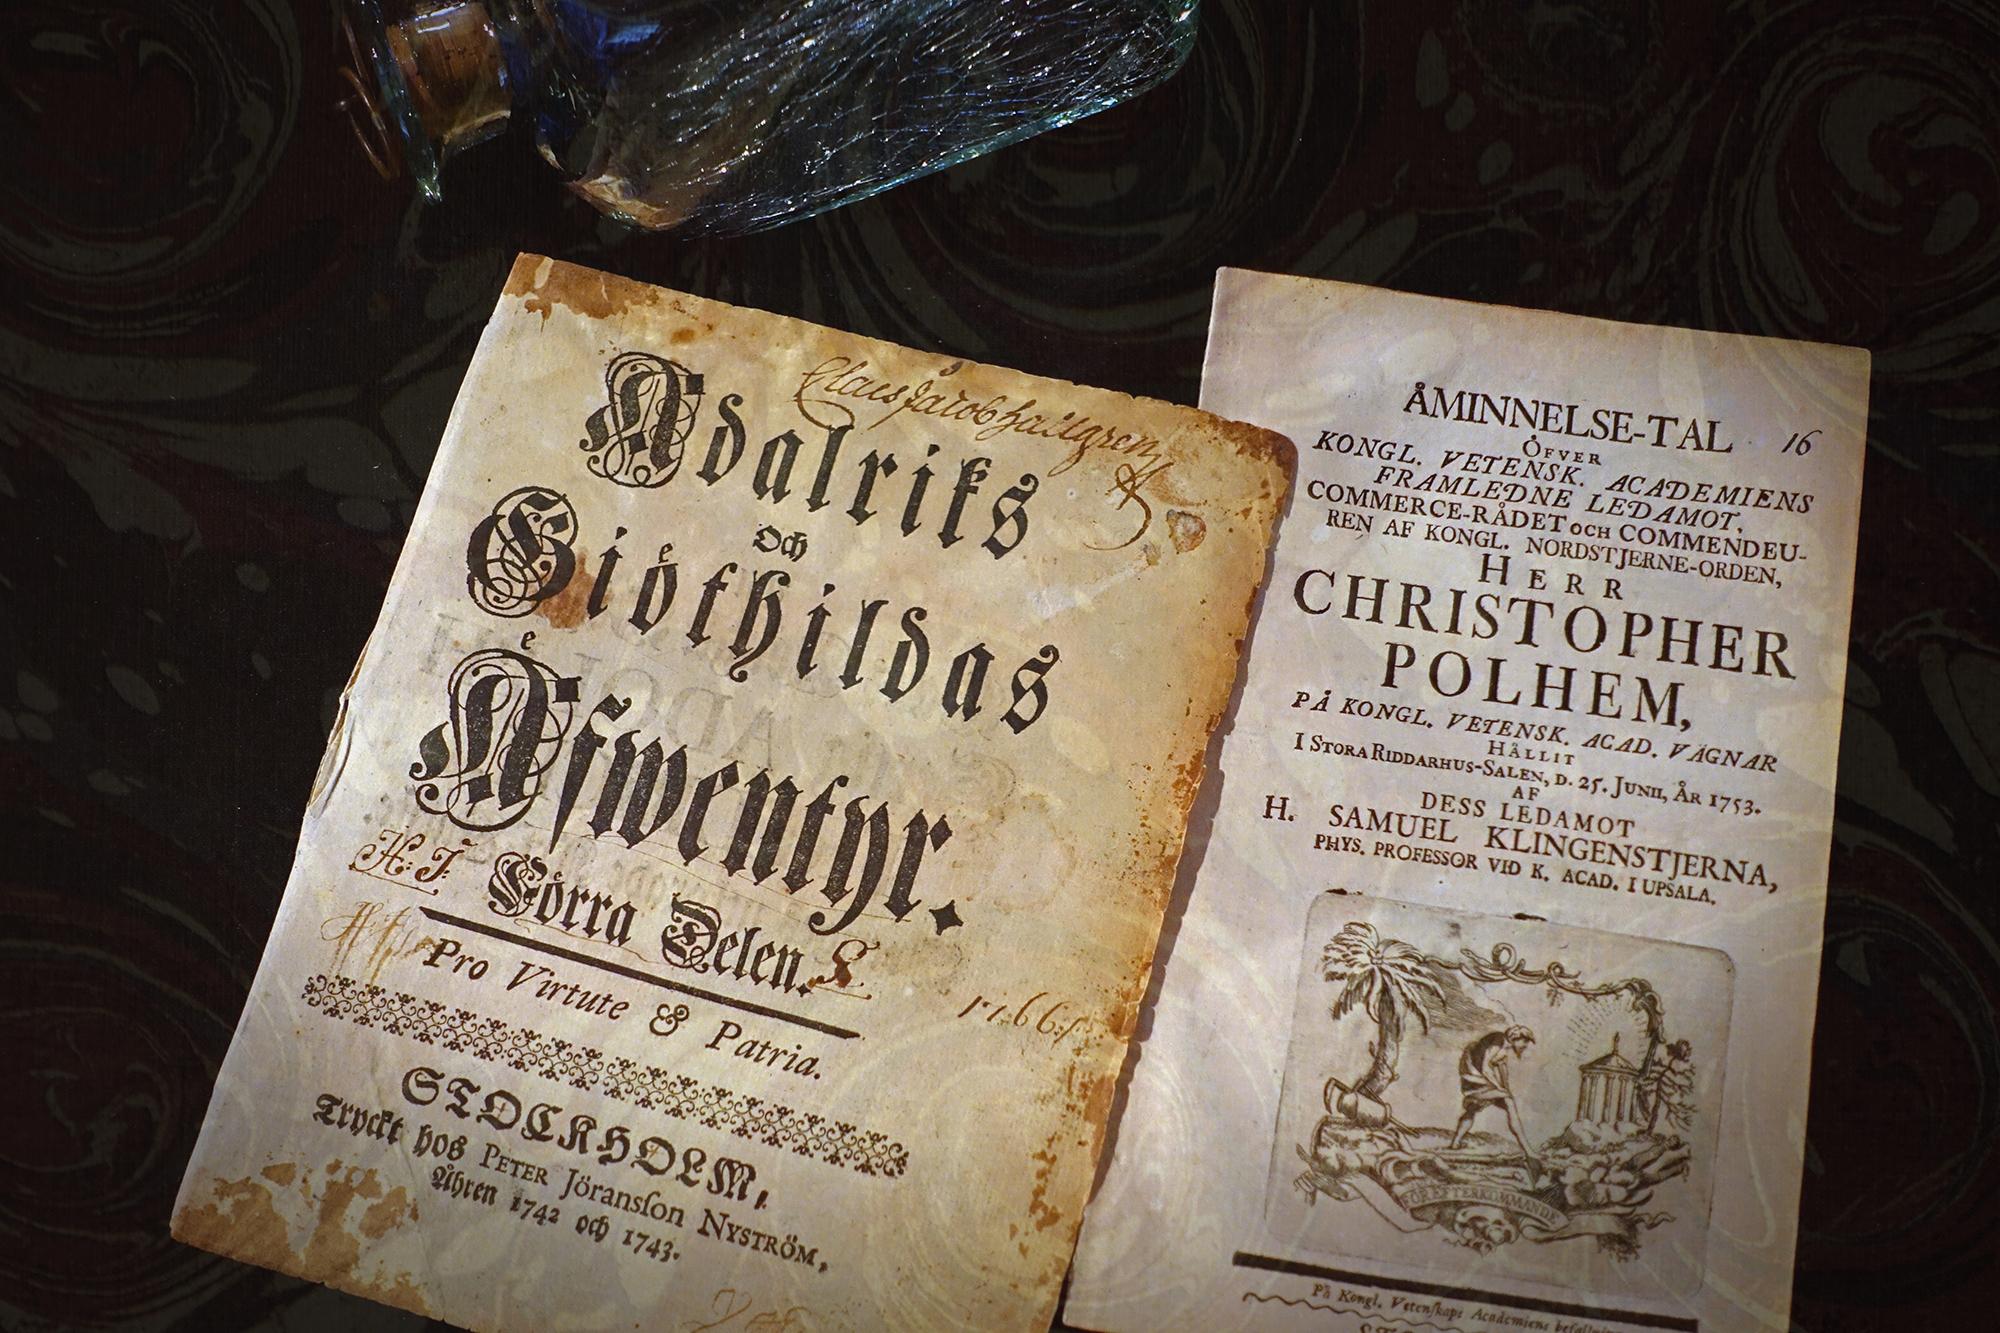 Claus Jacob Hallgren
Adalriks
Och
Giöthildas
Äfwentyr.
H. J. Förra Delen.
Pro Virtute & Patria.
1766
STOCKHOLM,
Tryckt hos PETER Jöransſon NYSTRÖM,
Åhren 1742 och 1743.
ÅMINNELSE-TAL
16
ÖFVER
KONGL. VETENSK. ACADEMIENS
FRAMLEDNE LEDAMOT,
COMMERCE-RÅDET OCH COMMENDEU-
REN AF KONGL. NORDSTJERNE-ORDEN,
HERR
CHRISTOPHER
POLHEM,
PÅ KONGL. VETENSK. ACAD. VÄGNAR
HÅLLIT
I STORA RIDDARHUS-SALEN, D. 25. JUNII, ÅR 1753.
AF
DESS LEDAMOT
H. SAMUEL KLINGENSTJERNA,
PHYS. PROFESSOR VID K. ACAD. I UPSALA.
FÖR EFTERKOMMANDE
På Kongl. Vetenſkaps Academiens